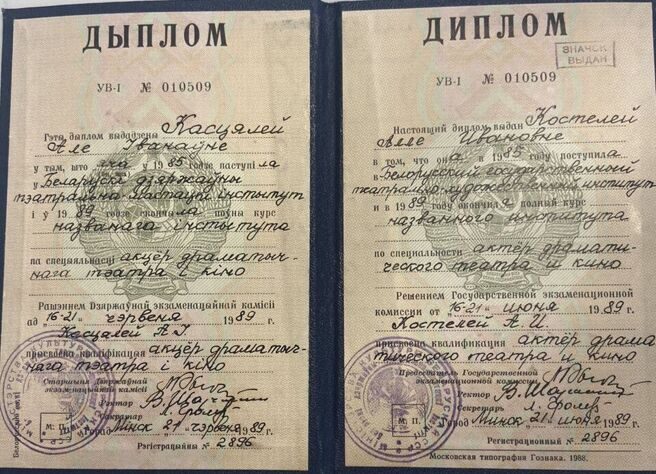 ДЫПЛОМ
УВ-I № 010509
Гэты дыплом выдадзены Касцялей
Але Іванаўне
у тым, што яна у 1985 годзе наступіла
у Беларускі дзяржаўны
тэатральна-мастацкі інстытут
і ў 1989 годзе скончыла поўны курс
названага інстытута
па спецыяльнасці акцёр драматыч-
нага тэатра і кіно
Рашэннем Дзяржаўнай экзаменацыйнай камісіі
ад "16-21" чэрвеня 1989 г.
Касцялей А.І.
прысвоена кваліфікацыя акцёр драматыч-
нага тэатра і кіно
Старшыня Дзяржаўнай
экзаменацыйнай камісіі
Рэктар
Сакратар
М. П.
Горад Мінск 21 чэрвеня 1989 г.
Рэгістрацыйны № 2896
ДИПЛОМ
ЗНАЧОК
ВЫДАН
УВ-I № 010509
Настоящий диплом выдан Костелей
Алле Ивановне
в том, что она в 1985 году поступила
в Белорусский государственный
театрально-художественный институт
и в 1989 году окончила полный курс
названного института
по специальности актёр драмати-
ческого театра и кино
Решением Государственной экзаменационной
комиссии от "16-21" июня 1989 г.
Костелей А.И.
присвоена квалификация актёр драма
тического театра и кино
Председатель Государственной
экзаменационной комиссии
Ректор
Секретарь
М. П.
Город Минск 21 июня 1989 г.
Регистрационный № 2896
Московская типография Гознака. 1988.